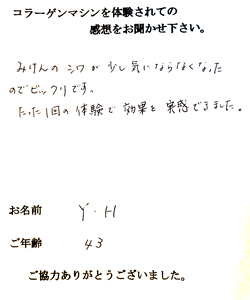 コラーゲンマシンを体験されての
感想をお聞かせ下さい。
みけんのシワが少し気にならなくなった
のでビックリです。
たった1回の体験で効果を実感できました。
お名前 Y・H
ご年齢 43
ご協力ありがとうございました。